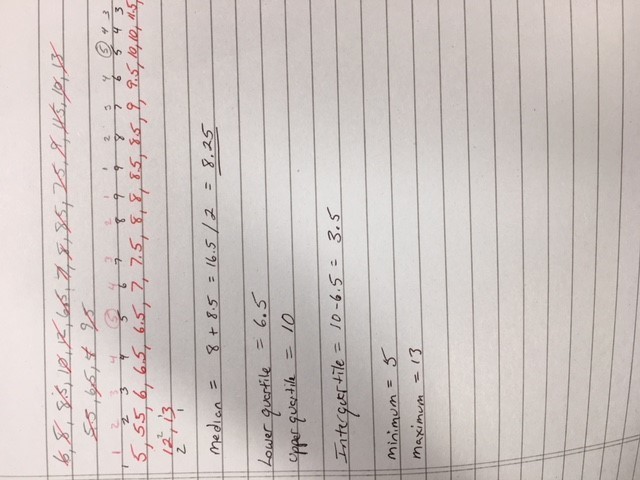 6, 8, 8.5, 10, 12, 6.5, 7, 8, 8.5, 7.5, 9, 11.5, 10, 13
5.5, 6.5, 9.5
1 2 3 4 5 4 3 2 1 1 2 3 4 5 4 3
1 2 3 4 5 6 7 8 9 9 8 7 6 5 4 3
5, 5.5, 6, 6.5, 6.5, 7, 7.5, 8, 8, 8.5, 8.5, 9, 9.5, 10, 10, 11.5,
12, 13
2 1
median = 8 + 8.5 = 16.5 / 2 = 8.25
Lower quartile = 6.5
upper quartile = 10
Interquartile = 10-6.5 = 3.5
minimum = 5
maximum = 13